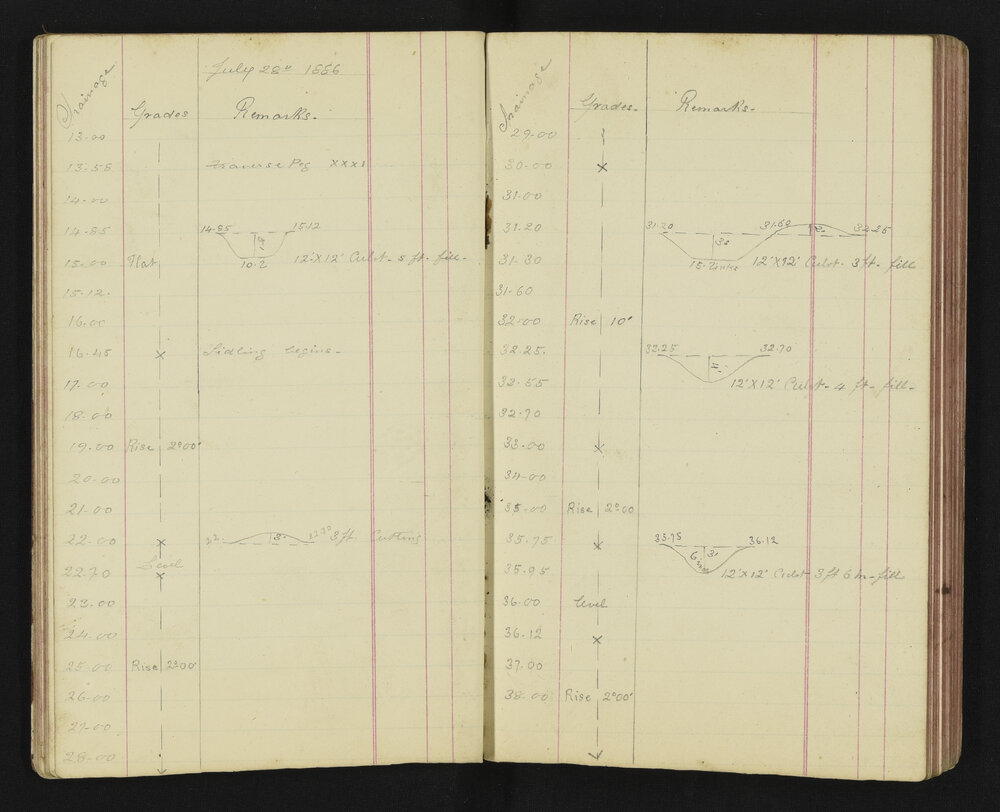 July 28th 1886
Drainage Grades Remarks.
13.00
13.55 Traverse Peg XXXI
14.00
14.85 14.85 15.12
15.00 Flat 10.2 12'X12' Culvt. 5 ft. fill.
15.12.
16.00
16.45 x Sidling begins.
17.00
18.00
19.00 Rise 2°00'
20.00
21.00
22.00 x 22. 3 ft. Cutting
Level
22.70 x
23.00
24.00
25.00 Rise 2°00'
26.00
27.00
28.00
Drainage Grades. Remarks.
29.00
30.00 x
31.00
31.20 31.20 31.60 32.25
31.30 15. Links 12'X12' Culvt. 3 ft. fill
31.60
32.00 Rise 10°
32.25. 32.25 32.70
32.55 4' 12'X12' Culvt. 4 ft. fill.
32.70
33.00 x
34.00
35.00 Rise 2°00
35.75 x 35.75 36.12
35.95 3' 6 in 12'X12' Culvt 3 ft 6 in fill
36.00 level
36.12 x
37.00
38.00 Rise 2°00'